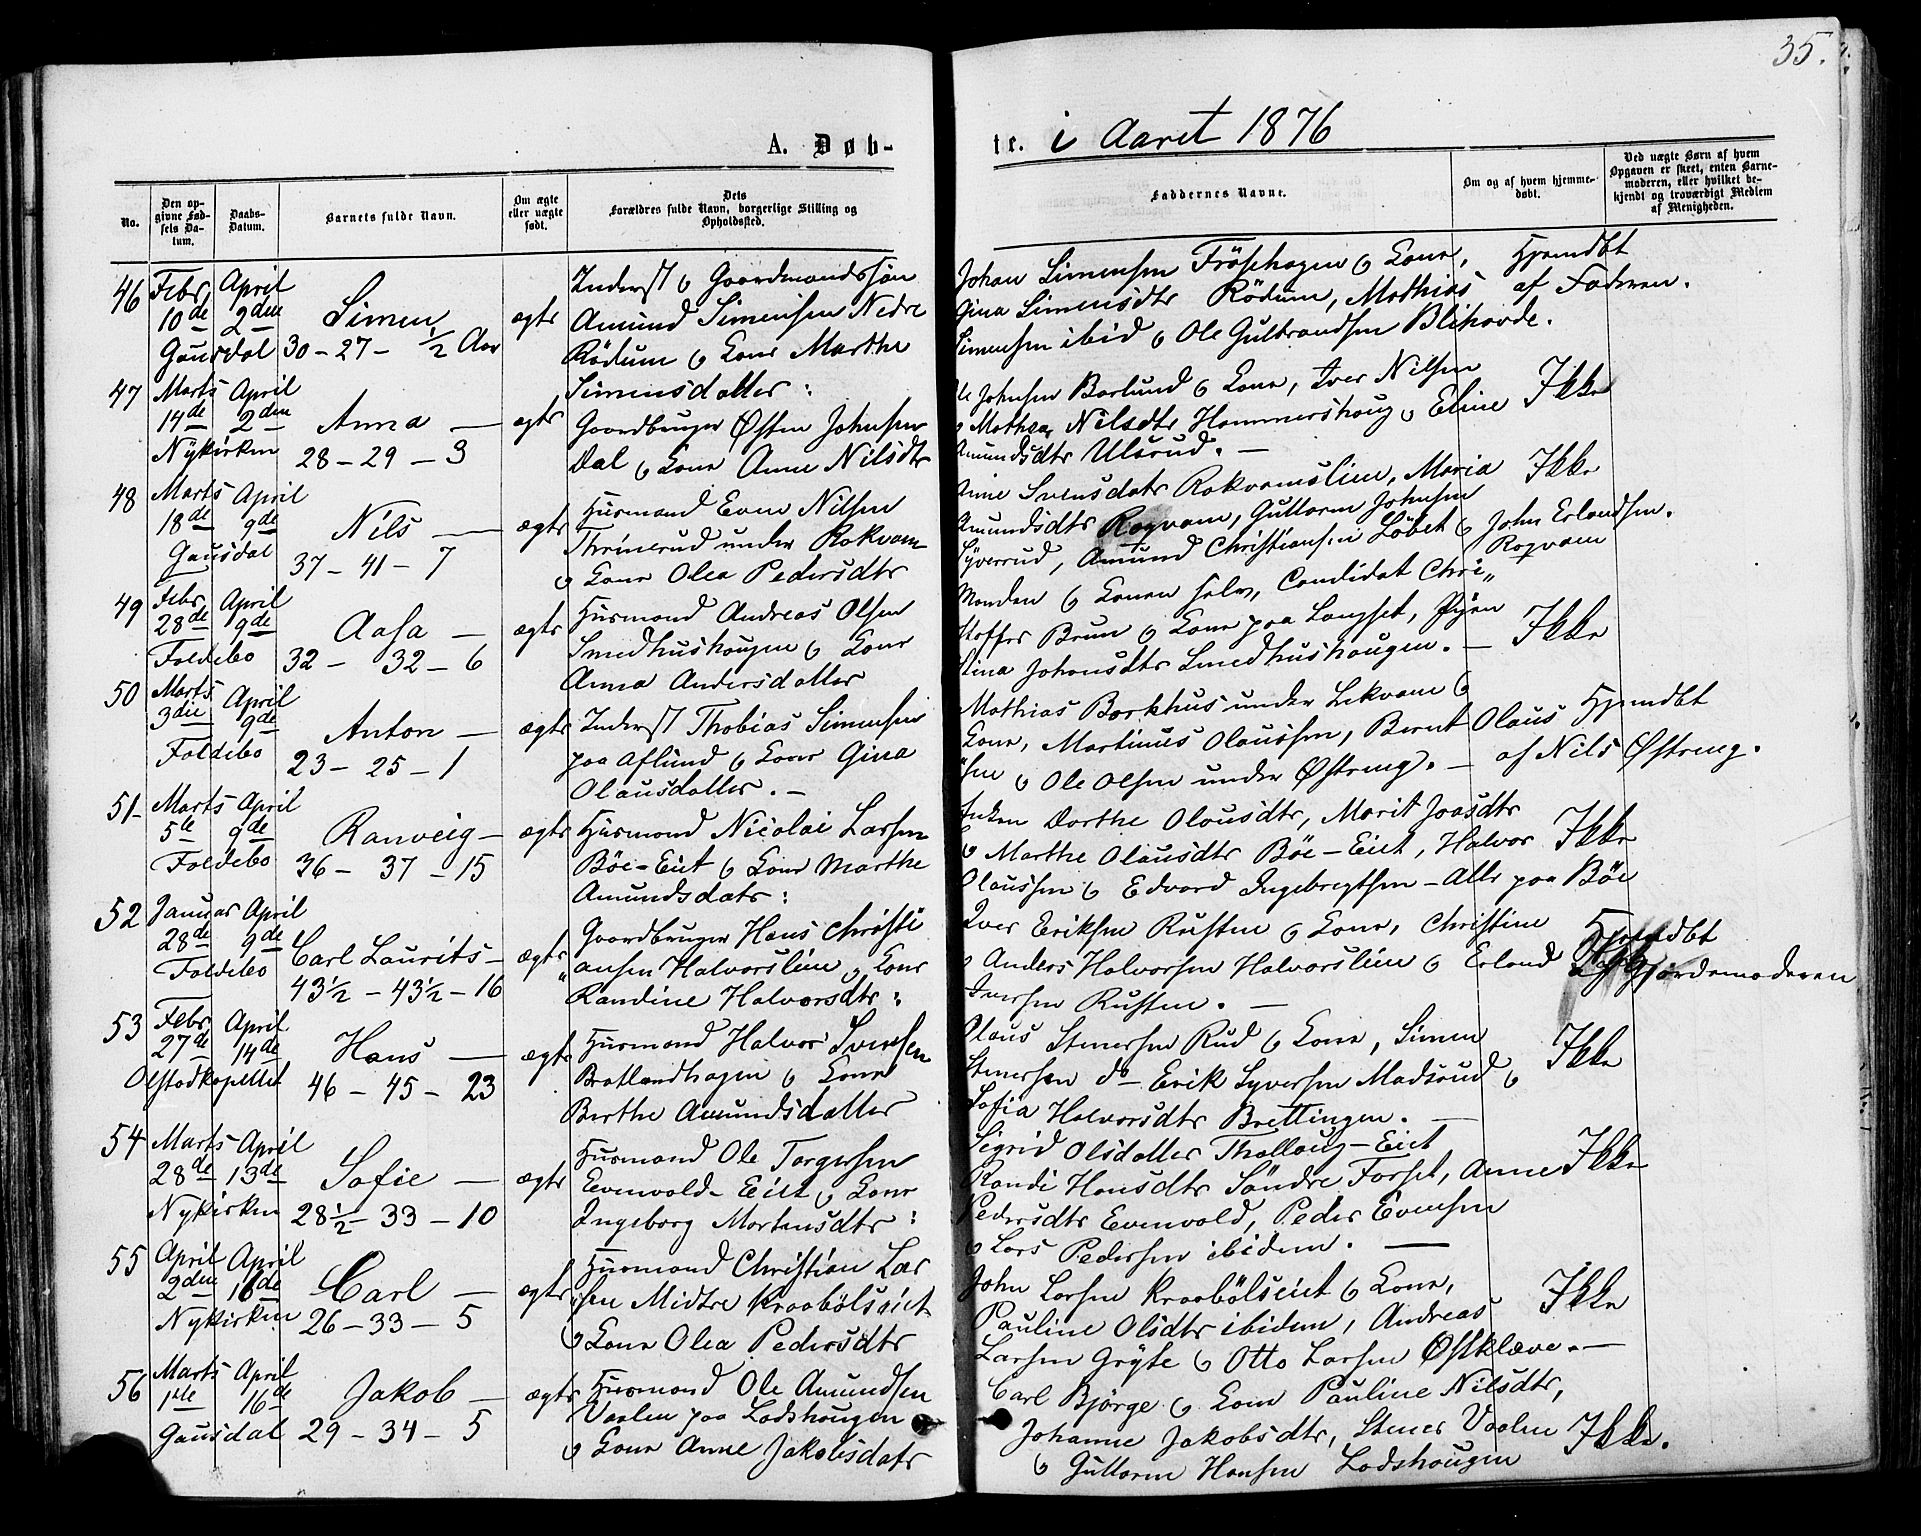 35.
A. Døb-
te. i Aaret 1876
No.
Den op-
givne Fød-
sels Da-
tum.
Daabs-
Datum.
Barnets fulde Navn.
Om ægte
eller uægte
født.
Dets
Forældres fulde Navn, borgerlige Stilling og
Opholdssted.
Faddernes Navne.
Om og af hvem hjemme-
døbt.
Ved uægte Børn af hvem
Opgaven er skeet, enten Barne-
moderen, eller hvilket be-
kjendt og troværdigt Medlem
af Menigheden.
46 Febr 10de Gausdal
April 2den
Simen
30 - 27 - ½ Aar
ægte
Inderst & Gaardmandssøn
Amund Simensen Nedre
Rødum & Kone Marthe
Simensdatter:
Johan Simensen Frösehagen & Kone,
Gina Simensdtr Rödum, Mathias
Simensen ibid & Ole Gulbrandsen Blihovde.
Hjemdbt
af Faderen.
47 Marts 14de Nykirken
April 2den
Anna
28 - 29 - 3
ægte
Gaardbruger Østen Johnsen
Dal & Kone Anne Nilsdtr
Ole Johnsen Barlund & Kone, Iver Nilsen
& Mathea Nilsdtr Hammershaug & Eline
Amundsdtr Ulsrud.
Ikke
48 Marts 18de Gausdal
April 9de
Nils
37 - 41 - 7
ægte
Husmand Even Nilsen
under Rokvam
& Kone Olea Pedersdtr
Anne Svensdatr Rokvamslien, Maria
Amundsdtr Rogvam, Guttorm Johnsen
Syverrud, Amund Christiansen Løbet & John Erlandsen
Rogvam
Ikke
49 Febr 28de Foldebo
April 9de
Aasa
32 - 32 - 6
ægte
Husmand Andreas Olsen
Smedhushaugen & Kone
Anna Andersdatter
Manden & Konen selv, Candidat Chri„
stoffer Brun & Kone paa Langset, Pigen
Stina Johansdtr Smedhushaugen.
Ikke
50 Marts 3die Foldebo
April 9de
Anton
23 - 25 - 1
ægte
Inderst Thobias Simensen
paa Aflund & Kone Gina
Olausdatter.
Mathias Barkhus under Lekvam &
Kone, Martinus Olaussen, Bernt Olaus
sen & Ole Olsen under Østreng.
Hjemdbt
af Nils Østreng.
51 Marts 5te Foldebo
April 9de
Ranveig
36 - 37 - 15
ægte
Husmand Nicolai Larsen
Böe-Eiet & Kone Marthe
Amundsdatr:
Enken Dorthe Olausdtr, Marit Joasdtr
& Marthe Olausdtr Böe-Eiet, Halvor
Olaussen & Edvard Ingebregtsen - Alle paa Böe
Ikke
52 Januar 28de Foldebo
April 9de
Carl Laurits
43½ - 43½ - 16
ægte
Gaardbruger Hans Christi
ansen Halvorslien & Kone
Randine Halvorsdtr:
Iver Eriksen Rusten & Kone, Christine
& Anders Halvorsen Halvorslien & Erland
Iversen Rusten.
Hjemdbt
af Gjordemoderen
53 Febr 27de Olstadkapellet
April 14de
Hans
46 - 45 - 23
ægte
Husmand Halvor Svensen
Bratlandhagen & Kone
Berthe Amundsdatter
Olaus Stenersen Rud & Kone, Simen
Stenersen do Erik Syversen Madsrud &
Sofia Halvorsdtr Brettingen.
Ikke
54 Marts 28de Nykirken
April 13de
Sofie
28½ - 33 - 10
ægte
Husmand Ole Torgersen
Evenvold-Eiet & Kone
Ingeborg Mortensdtr:
Sigrid Olsdatter Thallaug-Eiet
Randi Hansdtr Söndre Forset, Anne
Pedersdtr Evenvold, Peder Evensen
& Lars Pedersen ibidem.
Ikke
55 April 2den Nykirken
April 16de
Carl
26 - 33 - 5
ægte
Husmand Christian Lar
sen Midtre Kraaböls eiet
& Kone Olea Pedersdtr
John Larsen Kraabölseiet & Kone,
Pauline Olsdtr ibidem, Andreas
Larsen Gryte & Otto Larsen Østklæve.
Ikke
56 Marts 1ste Gausdal
April 16de
Jakob
29 - 34 - 5
ægte
Husmand Ole Amundsen
Vaalen paa Lodshougen
& Kone Anne Jakobsdatr
Carl Björge & Kone Pauline Nilsdtr,
Johanne Jakobsdtr, Stener Vaalen
& Guttorm Hansen Lodshougen
Ikke.